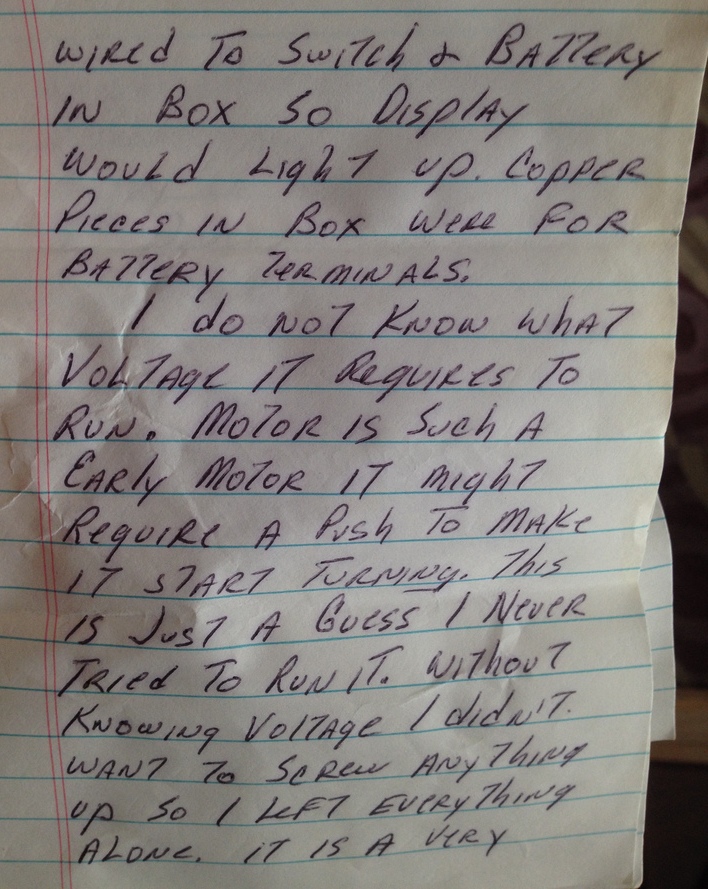 WIRED TO SWITCH & BATTERY
IN BOX SO DISPLAY
WOULD LIGHT UP. COPPER
PIECES IN BOX WERE FOR
BATTERY TERMINALS.
I DO NOT KNOW WHAT
VOLTAGE IT REQUIRES TO
RUN. MOTOR IS SUCH A
EARLY MOTOR IT MIGHT
REQUIRE A PUSH TO MAKE
IT START TURNING. THIS
IS JUST A GUESS I NEVER
TRIED TO RUN IT. WITHOUT
KNOWING VOLTAGE I DIDN'T
WANT TO SCREW ANYTHING
UP SO I LEFT EVERYTHING
ALONE. IT IS A VERY